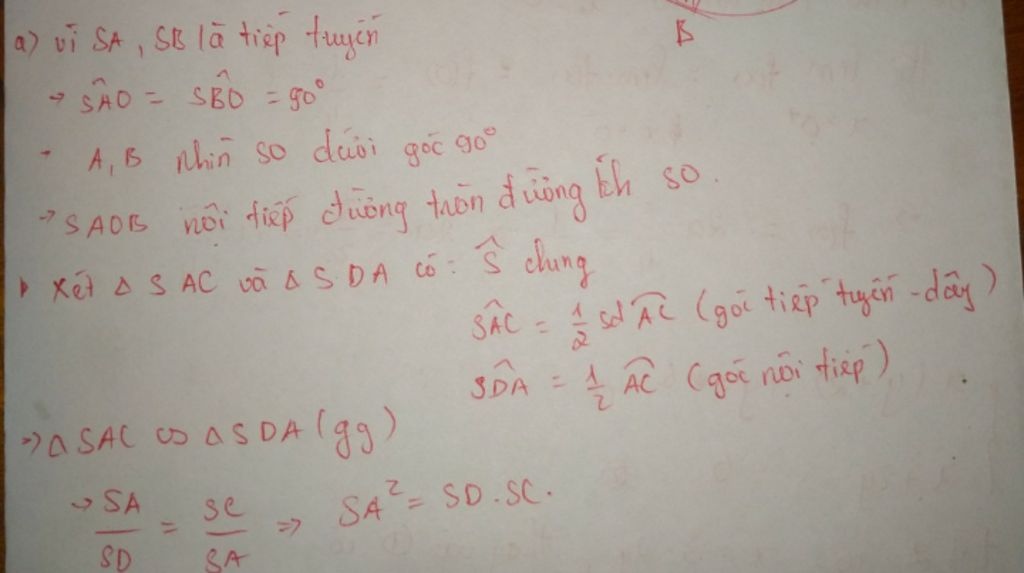 B
a) vì SA, SB là tiếp tuyến
→ SÂO = SB̂O = 90°
- A, B nhìn SO dưới góc 90°
→ SAOB nội tiếp đường tròn đường kh SO.
Xét Δ SAC và Δ SDA có: Ŝ chung
SÂC = 1/2 sđ AC (góc tiếp tuyến - dây)
SD̂A = 1/2 AC (góc nội tiếp)
→ Δ SAC ∽ Δ SDA (gg)
→ SA/SD = SC/SA => SA² = SD.SC.